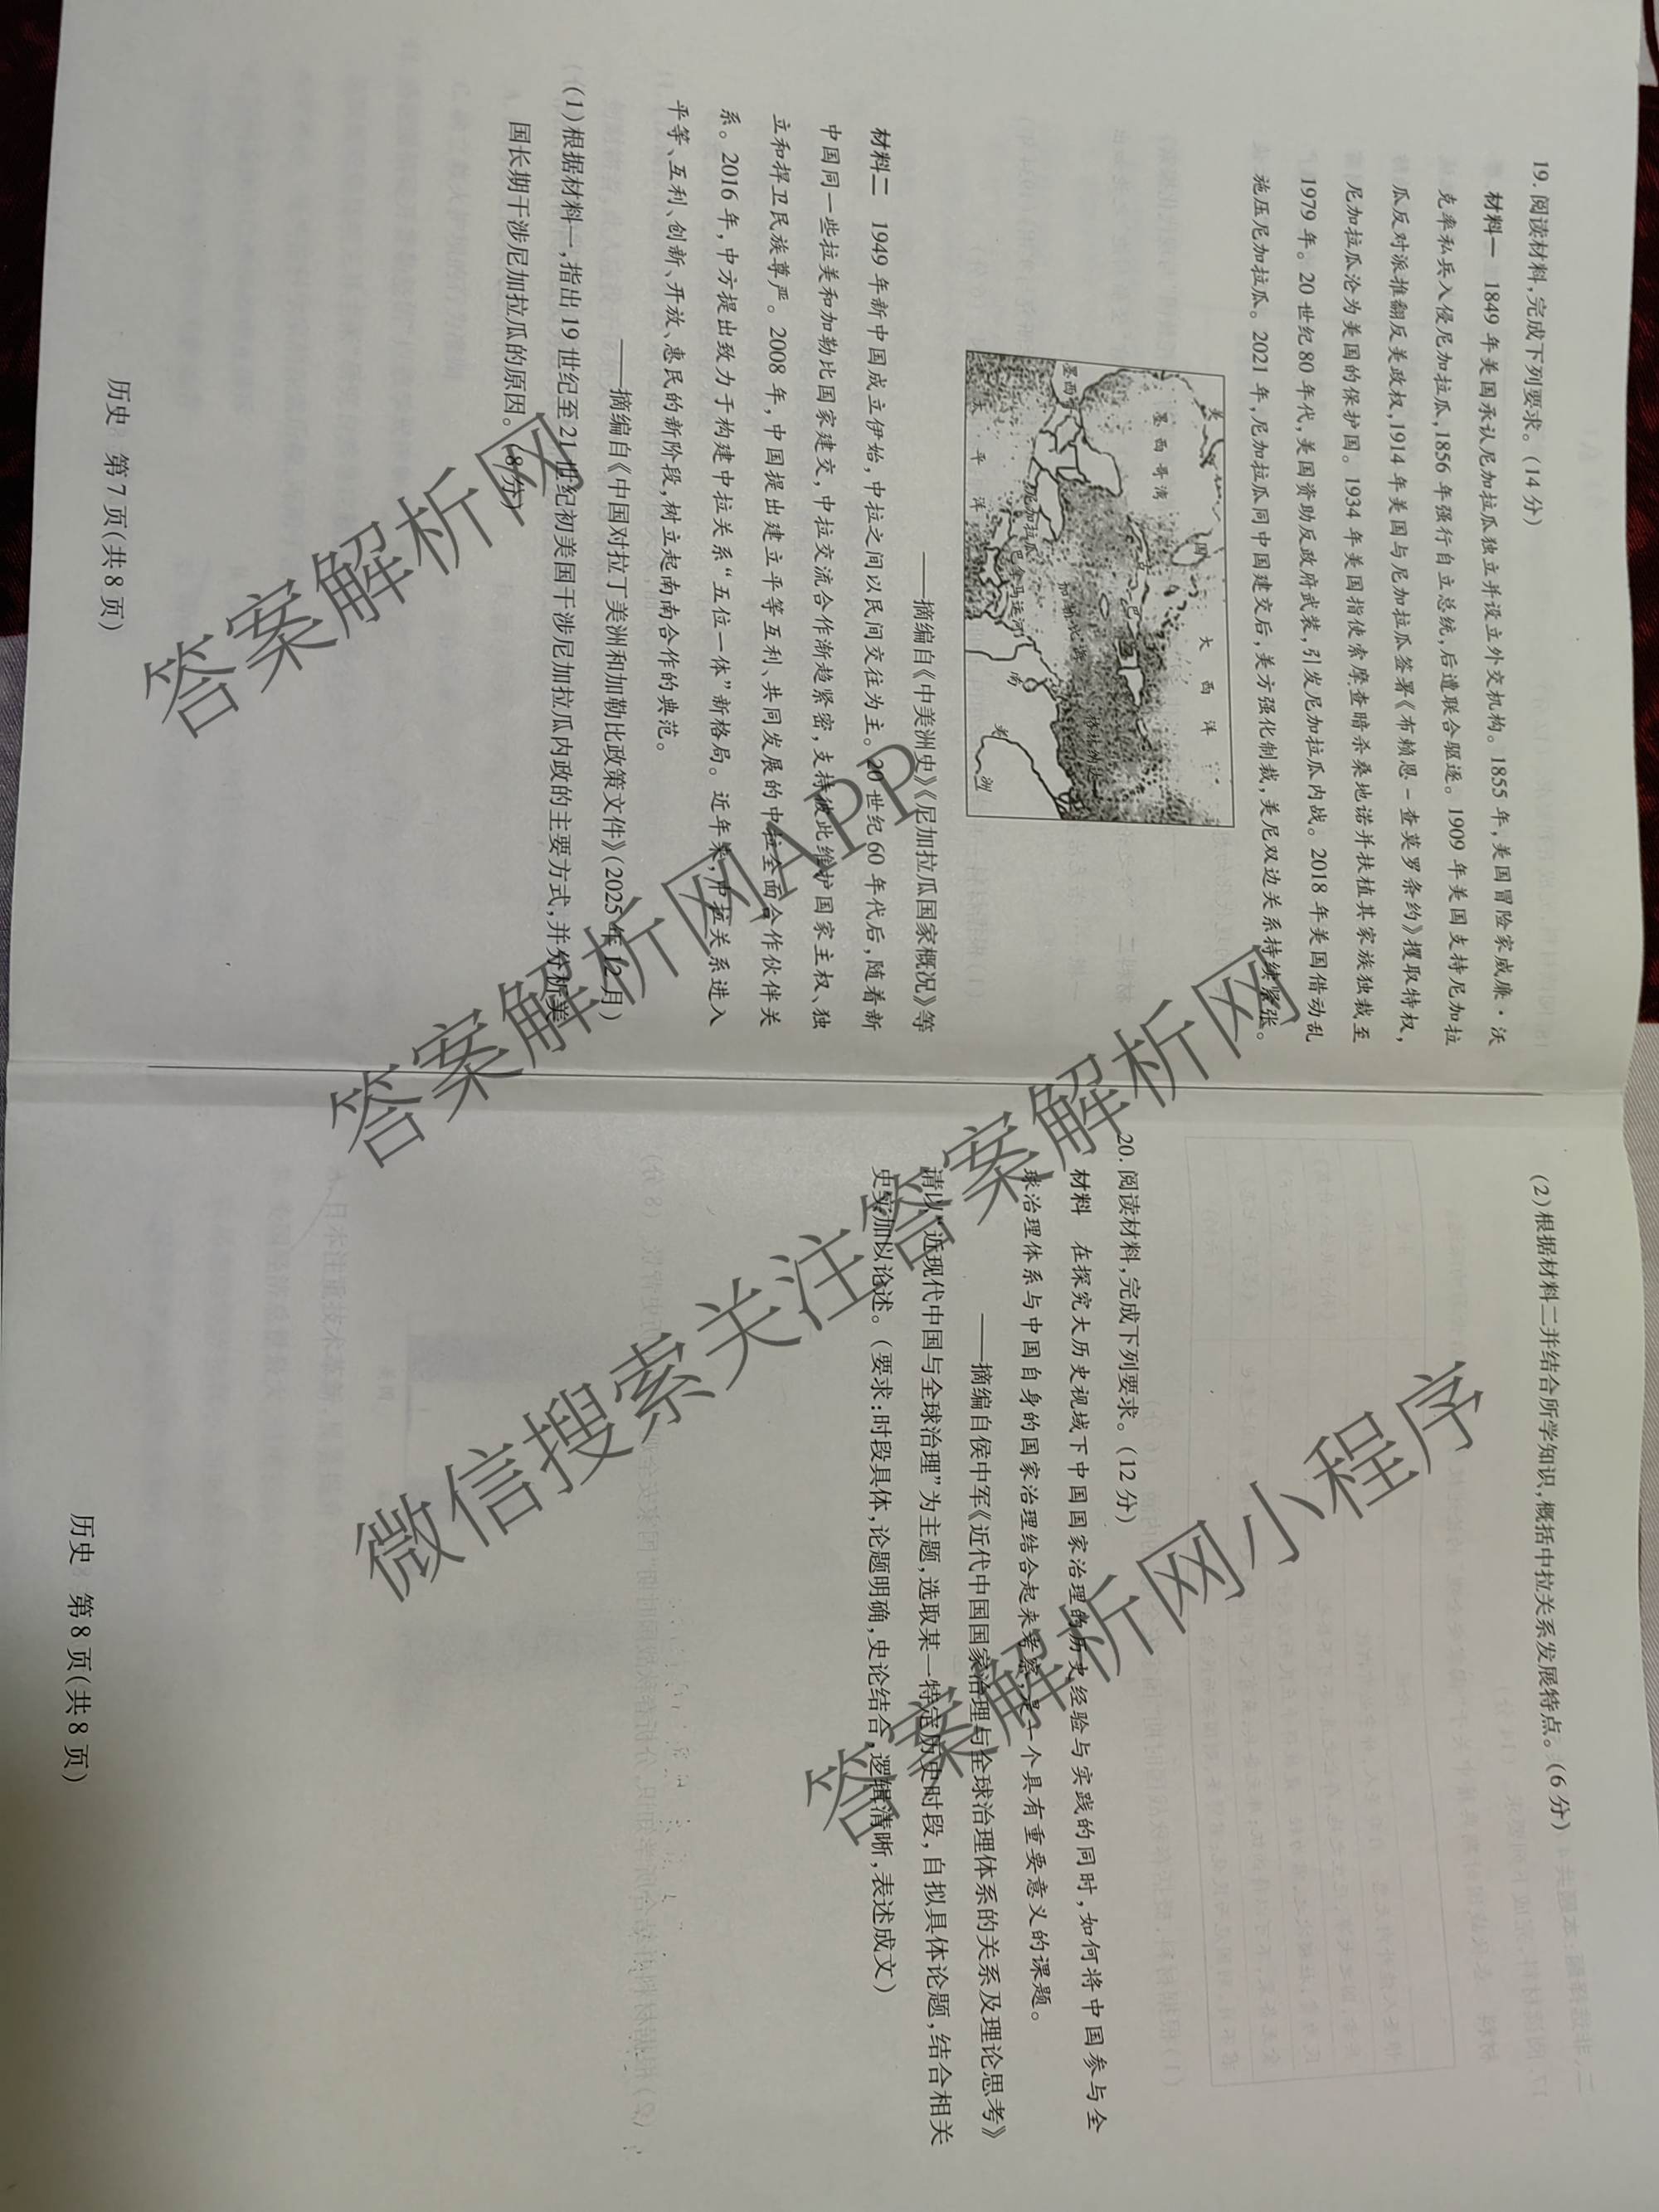 19. 阅读材料,完成下列要求。(14分)
材料一 1849年美国承认尼加拉瓜独立并设立外交机构。1855年,美国冒险家威廉·沃
克率私兵入侵尼加拉瓜,1856年强行自立总统,后遭联合驱逐。1909年美国支持尼加拉
瓜反对派推翻反美政权,1914年美国与尼加拉瓜签署《布赖恩-查莫罗条约》攫取特权,
尼加拉瓜沦为美国的保护国。1934年美国指使索摩查暗杀桑地诺并扶植其家族独裁至
1979年。20世纪80年代,美国资助反政府武装,引发尼加拉瓜内战。2018年美国借动乱
施压尼加拉瓜。2021年,尼加拉瓜同中国建交后,美方强化制裁,美尼双边关系持续紧张。
美 国
大 西 洋
墨西哥湾
墨西哥
古巴
加勒比海
格林纳达
尼加拉瓜
巴拿马运河
太 平 洋
南 美 洲
——摘编自《中美洲史》《尼加拉瓜国家概况》等
材料二 1949年新中国成立伊始,中拉之间以民间交往为主。20世纪60年代后,随着新
中国同一些拉美和加勒比国家建交,中拉交流合作渐趋紧密,支持彼此维护国家主权、独
立和捍卫民族尊严。2008年,中国提出建立平等互利、共同发展的中拉全面合作伙伴关
系。2016年,中方提出致力于构建中拉关系“五位一体”新格局。近年来,中拉关系进入
平等、互利、创新、开放、惠民的新阶段,树立起南南合作的典范。
——摘编自《中国对拉丁美洲和加勒比政策文件》(2025年12月)
(1)根据材料一,指出19世纪至21世纪初美国干涉尼加拉瓜内政的主要方式,并分析美
国长期干涉尼加拉瓜的原因。(8分)
历史 第7页(共8页)
(2)根据材料二并结合所学知识,概括中拉关系发展特点。(6分)
20. 阅读材料,完成下列要求。(12分)
材料 在探究大历史视域下中国国家治理的历史经验与实践的同时,如何将中国参与全
球治理体系与中国自身的国家治理结合起来考察,是一个具有重要意义的课题。
——摘编自侯中军《近代中国国家治理与全球治理体系的关系及理论思考》
请以“近现代中国与全球治理”为主题,选取某一特定历史时段,自拟具体论题,结合相关
史实加以论述。(要求:时段具体,论题明确,史论结合,逻辑清晰,表述成文)
历史 第8页(共8页)
答案解析网
答案解析网APP
微信搜索关注答案解析网
答案解析网小程序